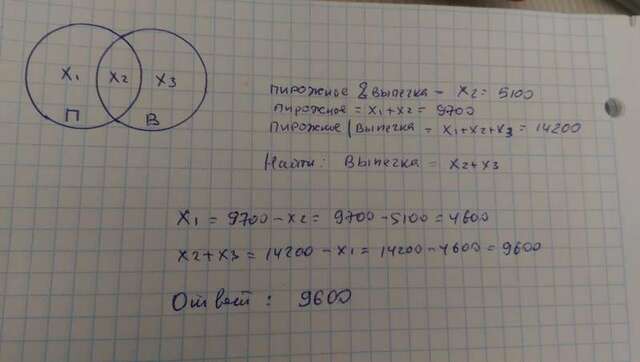 X1 X2 X3
П В
Пирожное & Выпечка - X2 = 5100
Пирожное = X1+X2 = 9700
Пирожное | Выпечка = X1+X2+X3 = 14200
Найти: Выпечка = X2+X3
X1 = 9700-X2 = 9700-5100 = 4600
X2+X3 = 14200-X1 = 14200-4600 = 9600
Ответ: 9600